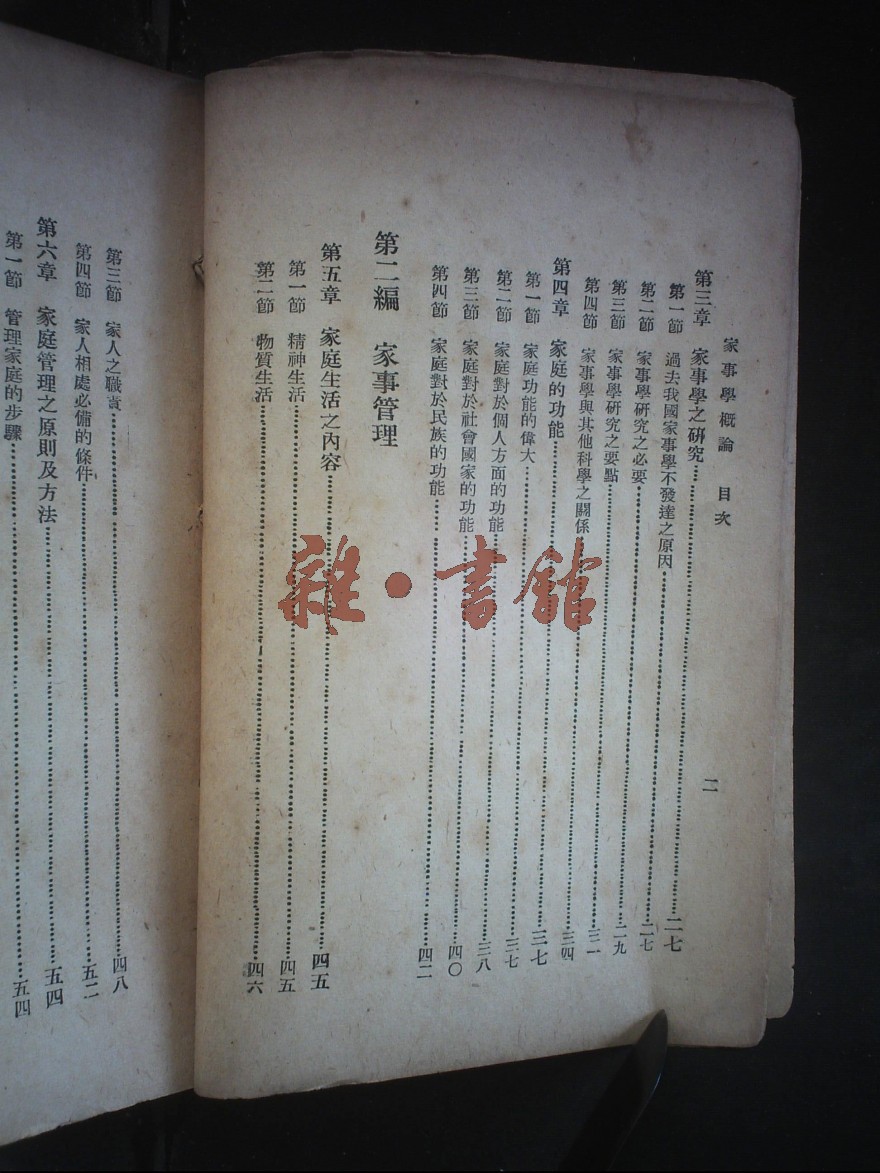 家事學概論　目次　二
第三章　家事學之研究……二七
第一節　過去我國家事學不發達之原因……二七
第二節　家事學研究之必要……二九
第三節　家事學研究之要點……三一
第四節　家事學與其他科學之關係……三四
第四章　家庭的功能……三七
第一節　家庭功能的偉大……三七
第二節　家庭對於個人方面的功能……三八
第三節　家庭對於社會國家的功能……四〇
第四節　家庭對於民族的功能……四二
第二編　家事管理
第五章　家庭生活之內容……四五
第一節　精神生活……四五
第二節　物質生活……四六
第三節　家人之職責……四八
第四節　家人相處必備的條件……五二
第六章　家庭管理之原則及方法……五四
第一節　管理家庭的步驟……五四
雜·書館